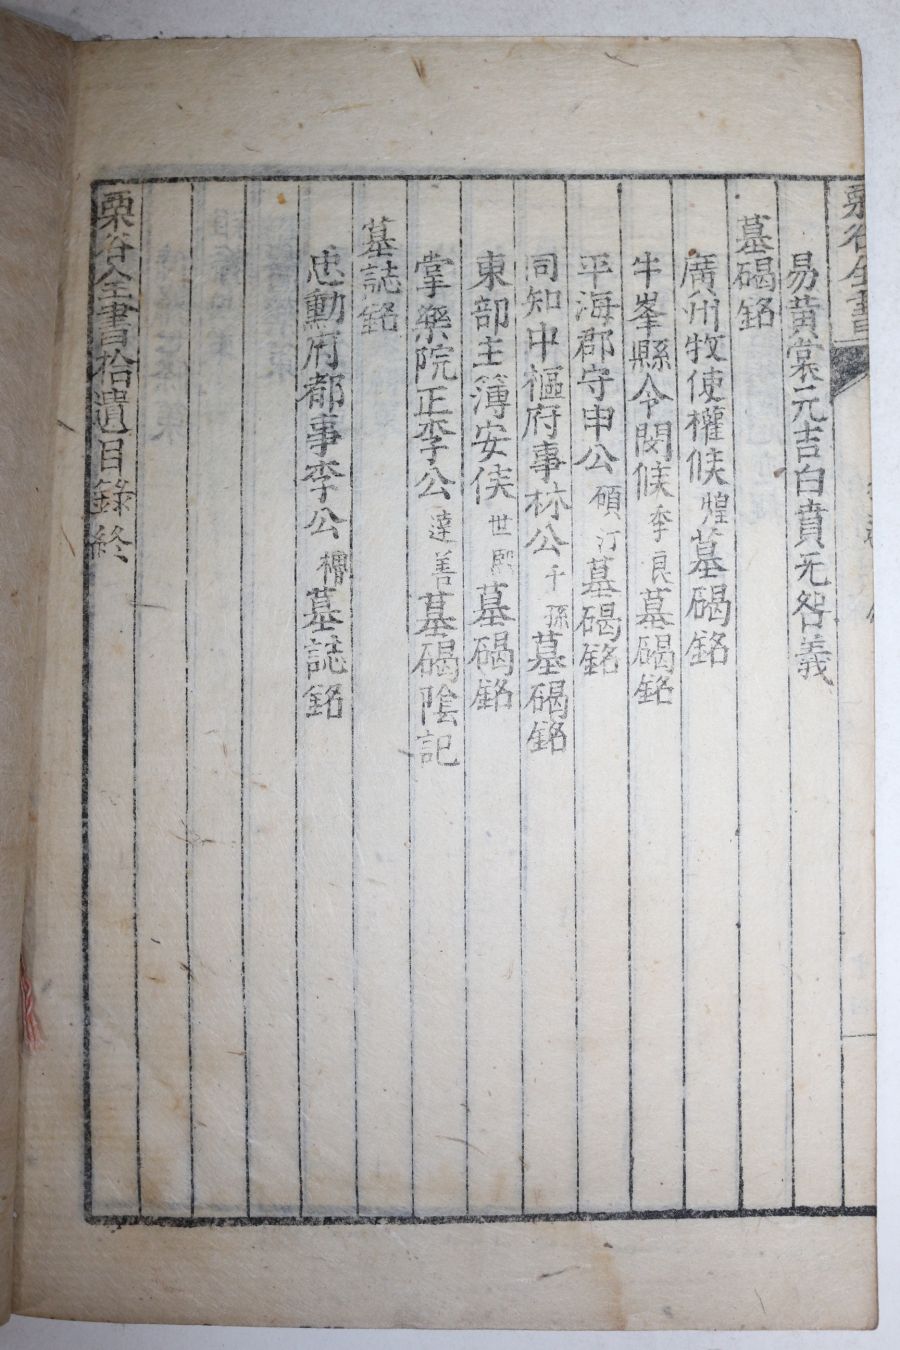 栗谷全書
易黃裳元吉白賁无咎義
墓碣銘
廣州牧使權侯煌墓碣銘
牛峯縣令閔侯季良墓碣銘
平海郡守申公碩汀墓碣銘
同知中樞府事林公千孫墓碣銘
東部主簿安侯世熙墓碣銘
掌樂院正李公達善墓碣陰記
墓誌銘
忠勳府都事李公墓誌銘
栗谷全書拾遺目錄終